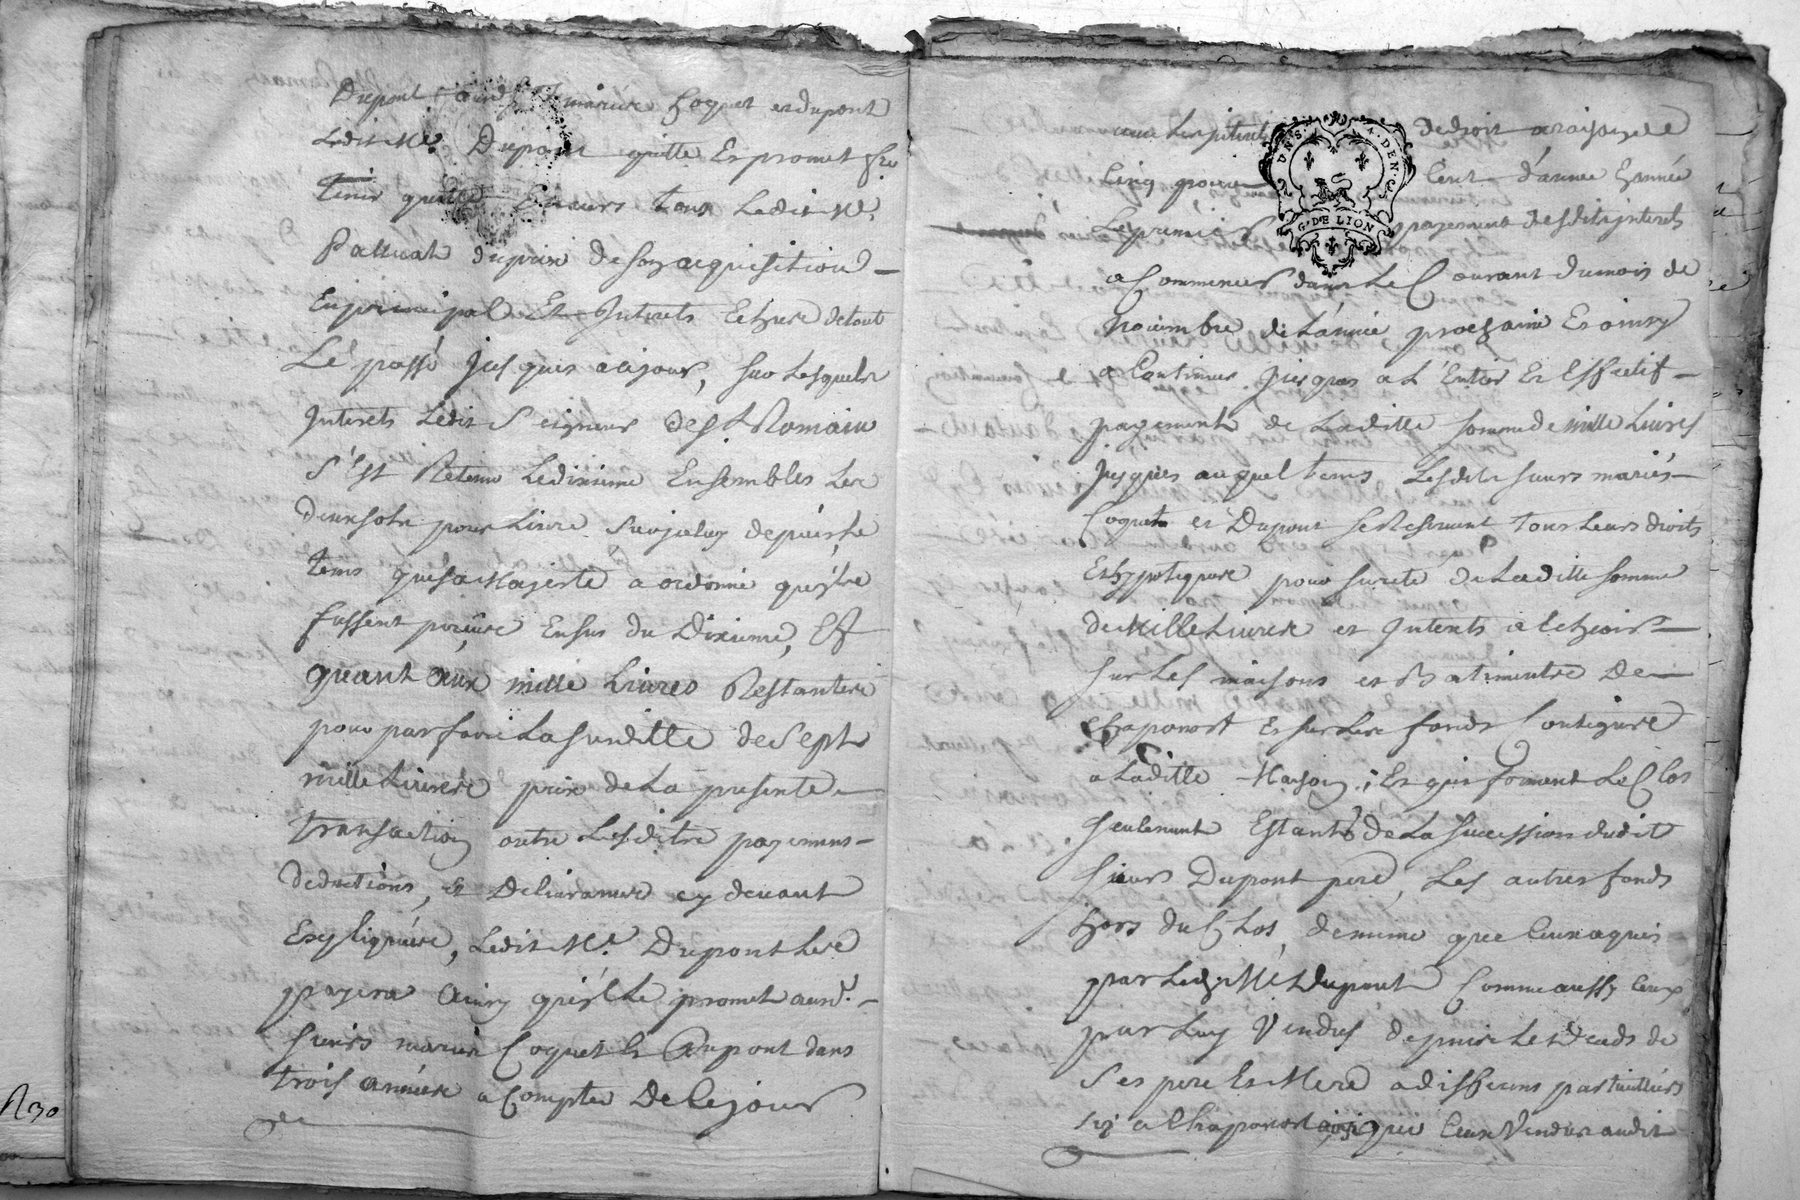 Dupont mariés Coquet et dupont
Ledit Me. Dupont quitte Et promet fre
tenir quitte Envers tous Ledit Me.
Palluat du prix de son acquisition
En principal Et Interets Echus de tout
Le passé jusques a ce jour, sur Lesquels
Interets Ledit Seigneur de St. Romain
S'est Retenu Le dixieme Ensembles Les
deux sols pour Livre d'iceluy depuis Le
tems que sa Majesté a ordonné qu'ils
fussent perçus En sus du Dixieme, Et
quant aux mille Livres Restantes
pour parfaire La susditte de Sept
mille Livres prix de La presente
transaction outre Lesdits payemens
deductions, Et Delivrances cy devant
Expliquées, Ledit Me. Dupont Les
payera Ainsy qu'il Le promet auxd.
sieurs mariés Coquet Et Dupont dans
trois années a Compter De Ce jour
N 30
avec Les interets de droit a raison de
Cinq pour Cent d'année En année
Le premier payement desdits interets
G. DE LION
a Commencer dans Le Courant du mois de
novembre de L'année prochaine Et ainsy
a Continuer jusques a L'Entier Et Effectif
payement de Laditte somme de mille Livres
jusques auquel tems Lesdits sieurs mariés
Coquet et Dupont se Reservent tous Leurs droits
Et hypoteques pour sureté de Laditte somme
de Mille Livres et Interets a Echeoir
sur Les maisons et Batiments De
Chaponost Et sur Les fonds Contigus
a Laditte Maison, Et qui forment Le Clos
seulement Estants de La succession dudit
sieurs Dupont pere, Les autres fonds
hors du Clos, de meme que Ceux aquis
par Ledit Me Dupont Comme aussy Ceux
par Luy Vendus depuis Les deceds de
Ses pere Et Mere a differens particuliers
a Chaponost que Ceux Vendus audit